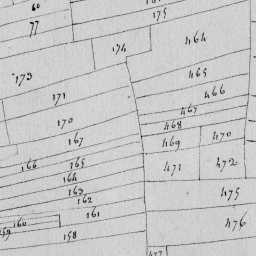 60
77
175
174
464
173
465
171
466
467
170
468
470
167
469
166
165
471
472
164
163
475
162
161
160
476
159
158
477